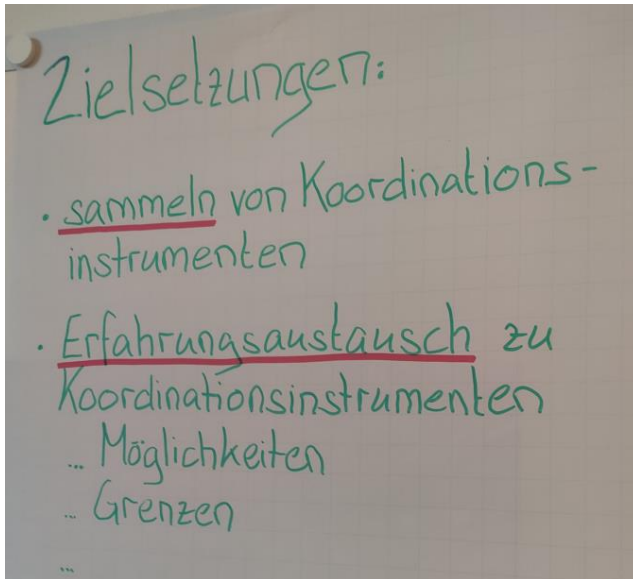 Zielsetzungen:
· sammeln von Koordinations-
instrumenten
· Erfahrungsaustausch zu
Koordinationsinstrumenten
... Möglichkeiten
... Grenzen
...